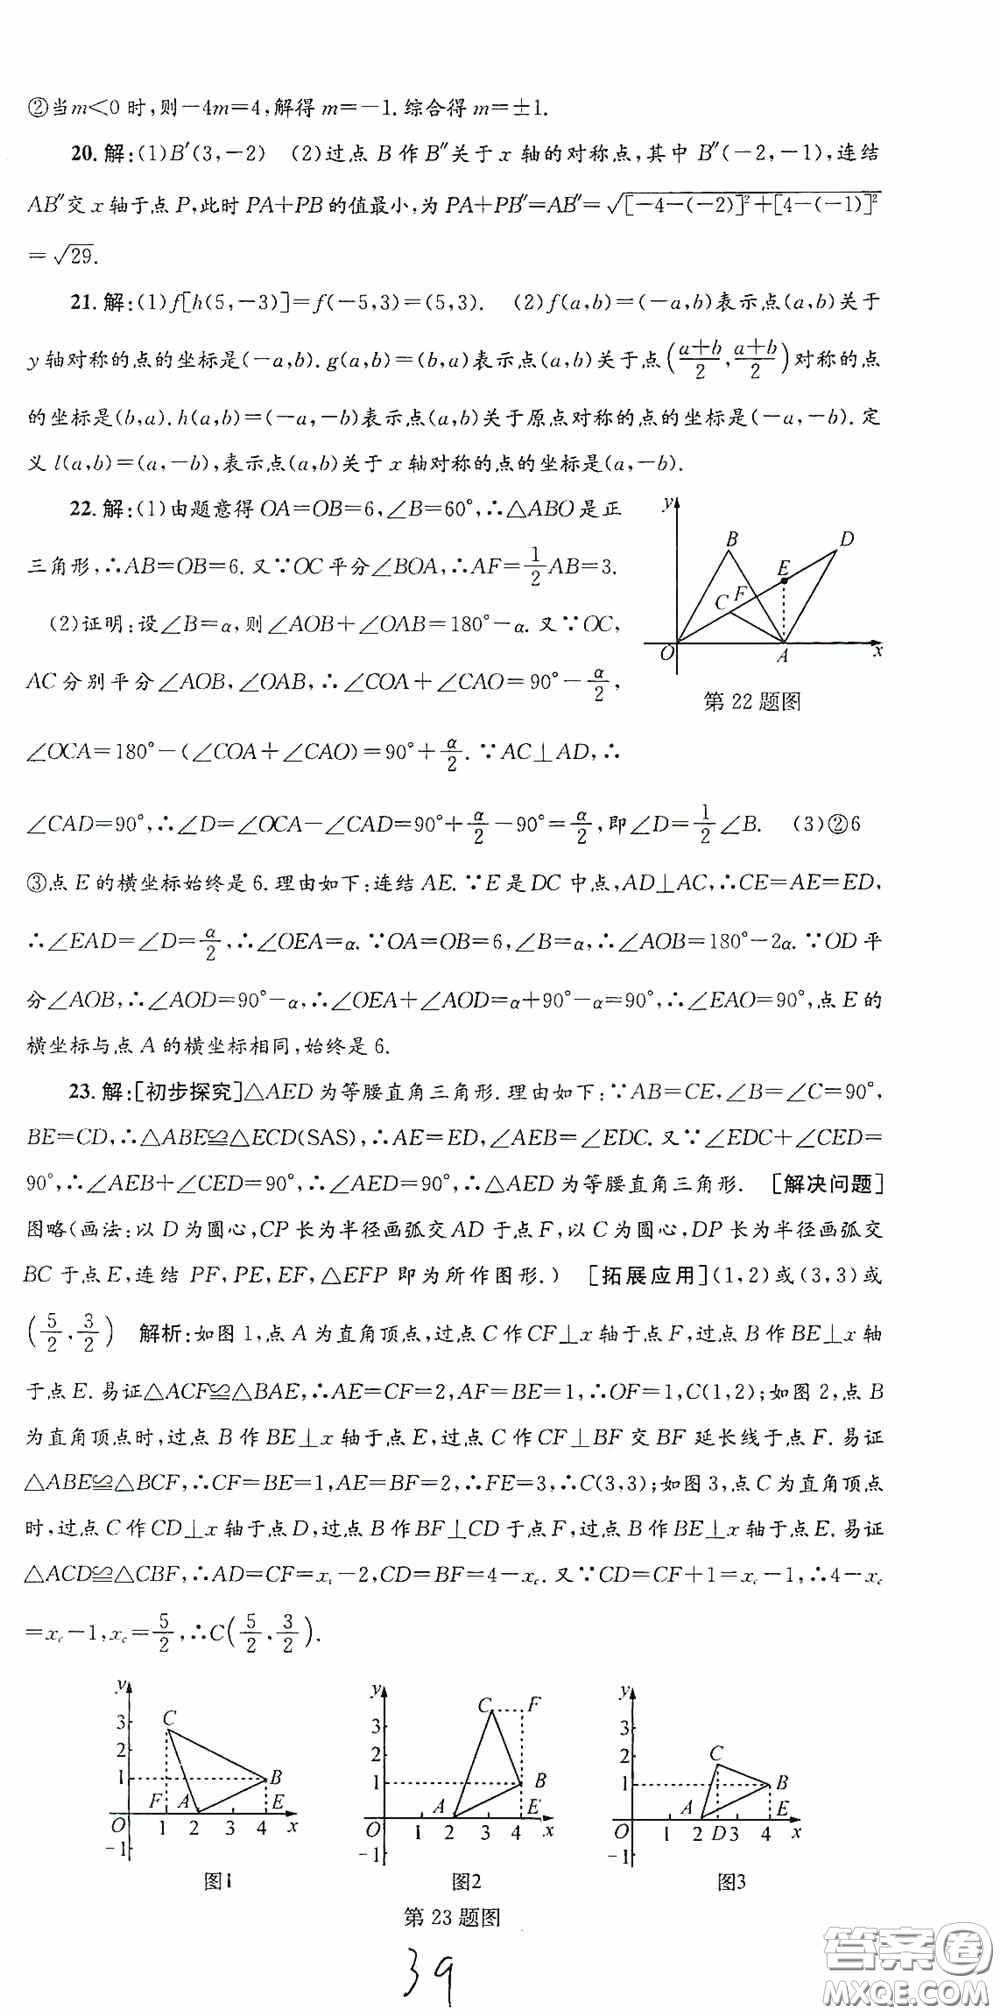 ②当m<0时,则-4m=4,解得m=-1.综合得m=±1.
20.解:(1)B′(3,-2) (2)过点B作B″关于x轴的对称点,其中B″(-2,-1),连结
AB″交x轴于点P,此时PA+PB的值最小,为PA+PB″=AB″=√[-4-(-2)]²+[4-(-1)]²
=√29.
21.解:(1)f[h(5,-3)]=f(-5,3)=(5,3). (2)f(a,b)=(-a,b)表示点(a,b)关于
y轴对称的点的坐标是(-a,b).g(a,b)=(b,a)表示点(a,b)关于点((a+b)/2,(a+b)/2)对称的点
的坐标是(b,a).h(a,b)=(-a,-b)表示点(a,b)关于原点对称的点的坐标是(-a,-b).定
义l(a,b)=(a,-b),表示点(a,b)关于x轴对称的点的坐标是(a,-b).
22.解:(1)由题意得OA=OB=6,∠B=60°,∴△ABO是正
三角形,∴AB=OB=6.又∵OC平分∠BOA,∴AF=1/2AB=3.
(2)证明:设∠B=α,则∠AOB+∠OAB=180°-α.又∵OC,
AC分别平分∠AOB,∠OAB,∴∠COA+∠CAO=90°-α/2,
∠OCA=180°-(∠COA+∠CAO)=90°+α/2.∵AC⊥AD,∴
y
B
D
E
C
F
O
A
x
第22题图
∠CAD=90°,∴∠D=∠OCA-∠CAD=90°+α/2-90°=α/2,即∠D=1/2∠B. (3)②6
③点E的横坐标始终是6.理由如下:连结AE.∵E是DC中点,AD⊥AC,∴CE=AE=ED,
∴∠EAD=∠D=α/2,∴∠OEA=α.∵OA=OB=6,∠B=α,∴∠AOB=180°-2α.∵OD平
分∠AOB,∴∠AOD=90°-α,∴∠OEA+∠AOD=α+90°-α=90°,∴∠EAO=90°,点E的
横坐标与点A的横坐标相同,始终是6.
23.解:[初步探究]△AED为等腰直角三角形.理由如下:∵AB=CE,∠B=∠C=90°,
BE=CD,∴△ABE≌△ECD(SAS),∴AE=ED,∠AEB=∠EDC.又∵∠EDC+∠CED=
90°,∴∠AEB+∠CED=90°,∴∠AED=90°,∴△AED为等腰直角三角形. [解决问题]
图略(画法:以D为圆心,CP长为半径画弧交AD于点F,以C为圆心,DP长为半径画弧交
BC于点E,连结PF,PE,EF,△EFP即为所作图形.) [拓展应用](1,2)或(3,3)或
(5/2,3/2) 解析:如图1,点A为直角顶点,过点C作CF⊥x轴于点F,过点B作BE⊥x轴
于点E.易证△ACF≌△BAE,∴AE=CF=2,AF=BE=1,∴OF=1,C(1,2);如图2,点B
为直角顶点时,过点B作BE⊥x轴于点E,过点C作CF⊥BF交BF延长线于点F.易证
△ABE≌△BCF,∴CF=BE=1,AE=BF=2,∴FE=3,∴C(3,3);如图3,点C为直角顶点
时,过点C作CD⊥x轴于点D,过点B作BF⊥CD于点F,过点B作BE⊥x轴于点E.易证
△ACD≌△CBF,∴AD=CF=x_c-2,CD=BF=4-x_c.又∵CD=CF+1=x_c-1,∴4-x_c
=x_c-1,x_c=5/2,∴C(5/2,3/2).
y
3
2
1
C
B
F
A
E
O
1 2 3 4
x
-1
图1
y
3
2
1
C
F
B
A
E
O
1 2 3 4
x
-1
图2
y
3
2
1
C
B
A
E
O
1 2 D 3 4
x
-1
图3
第23题图
39
答案卷
MXQE.COM